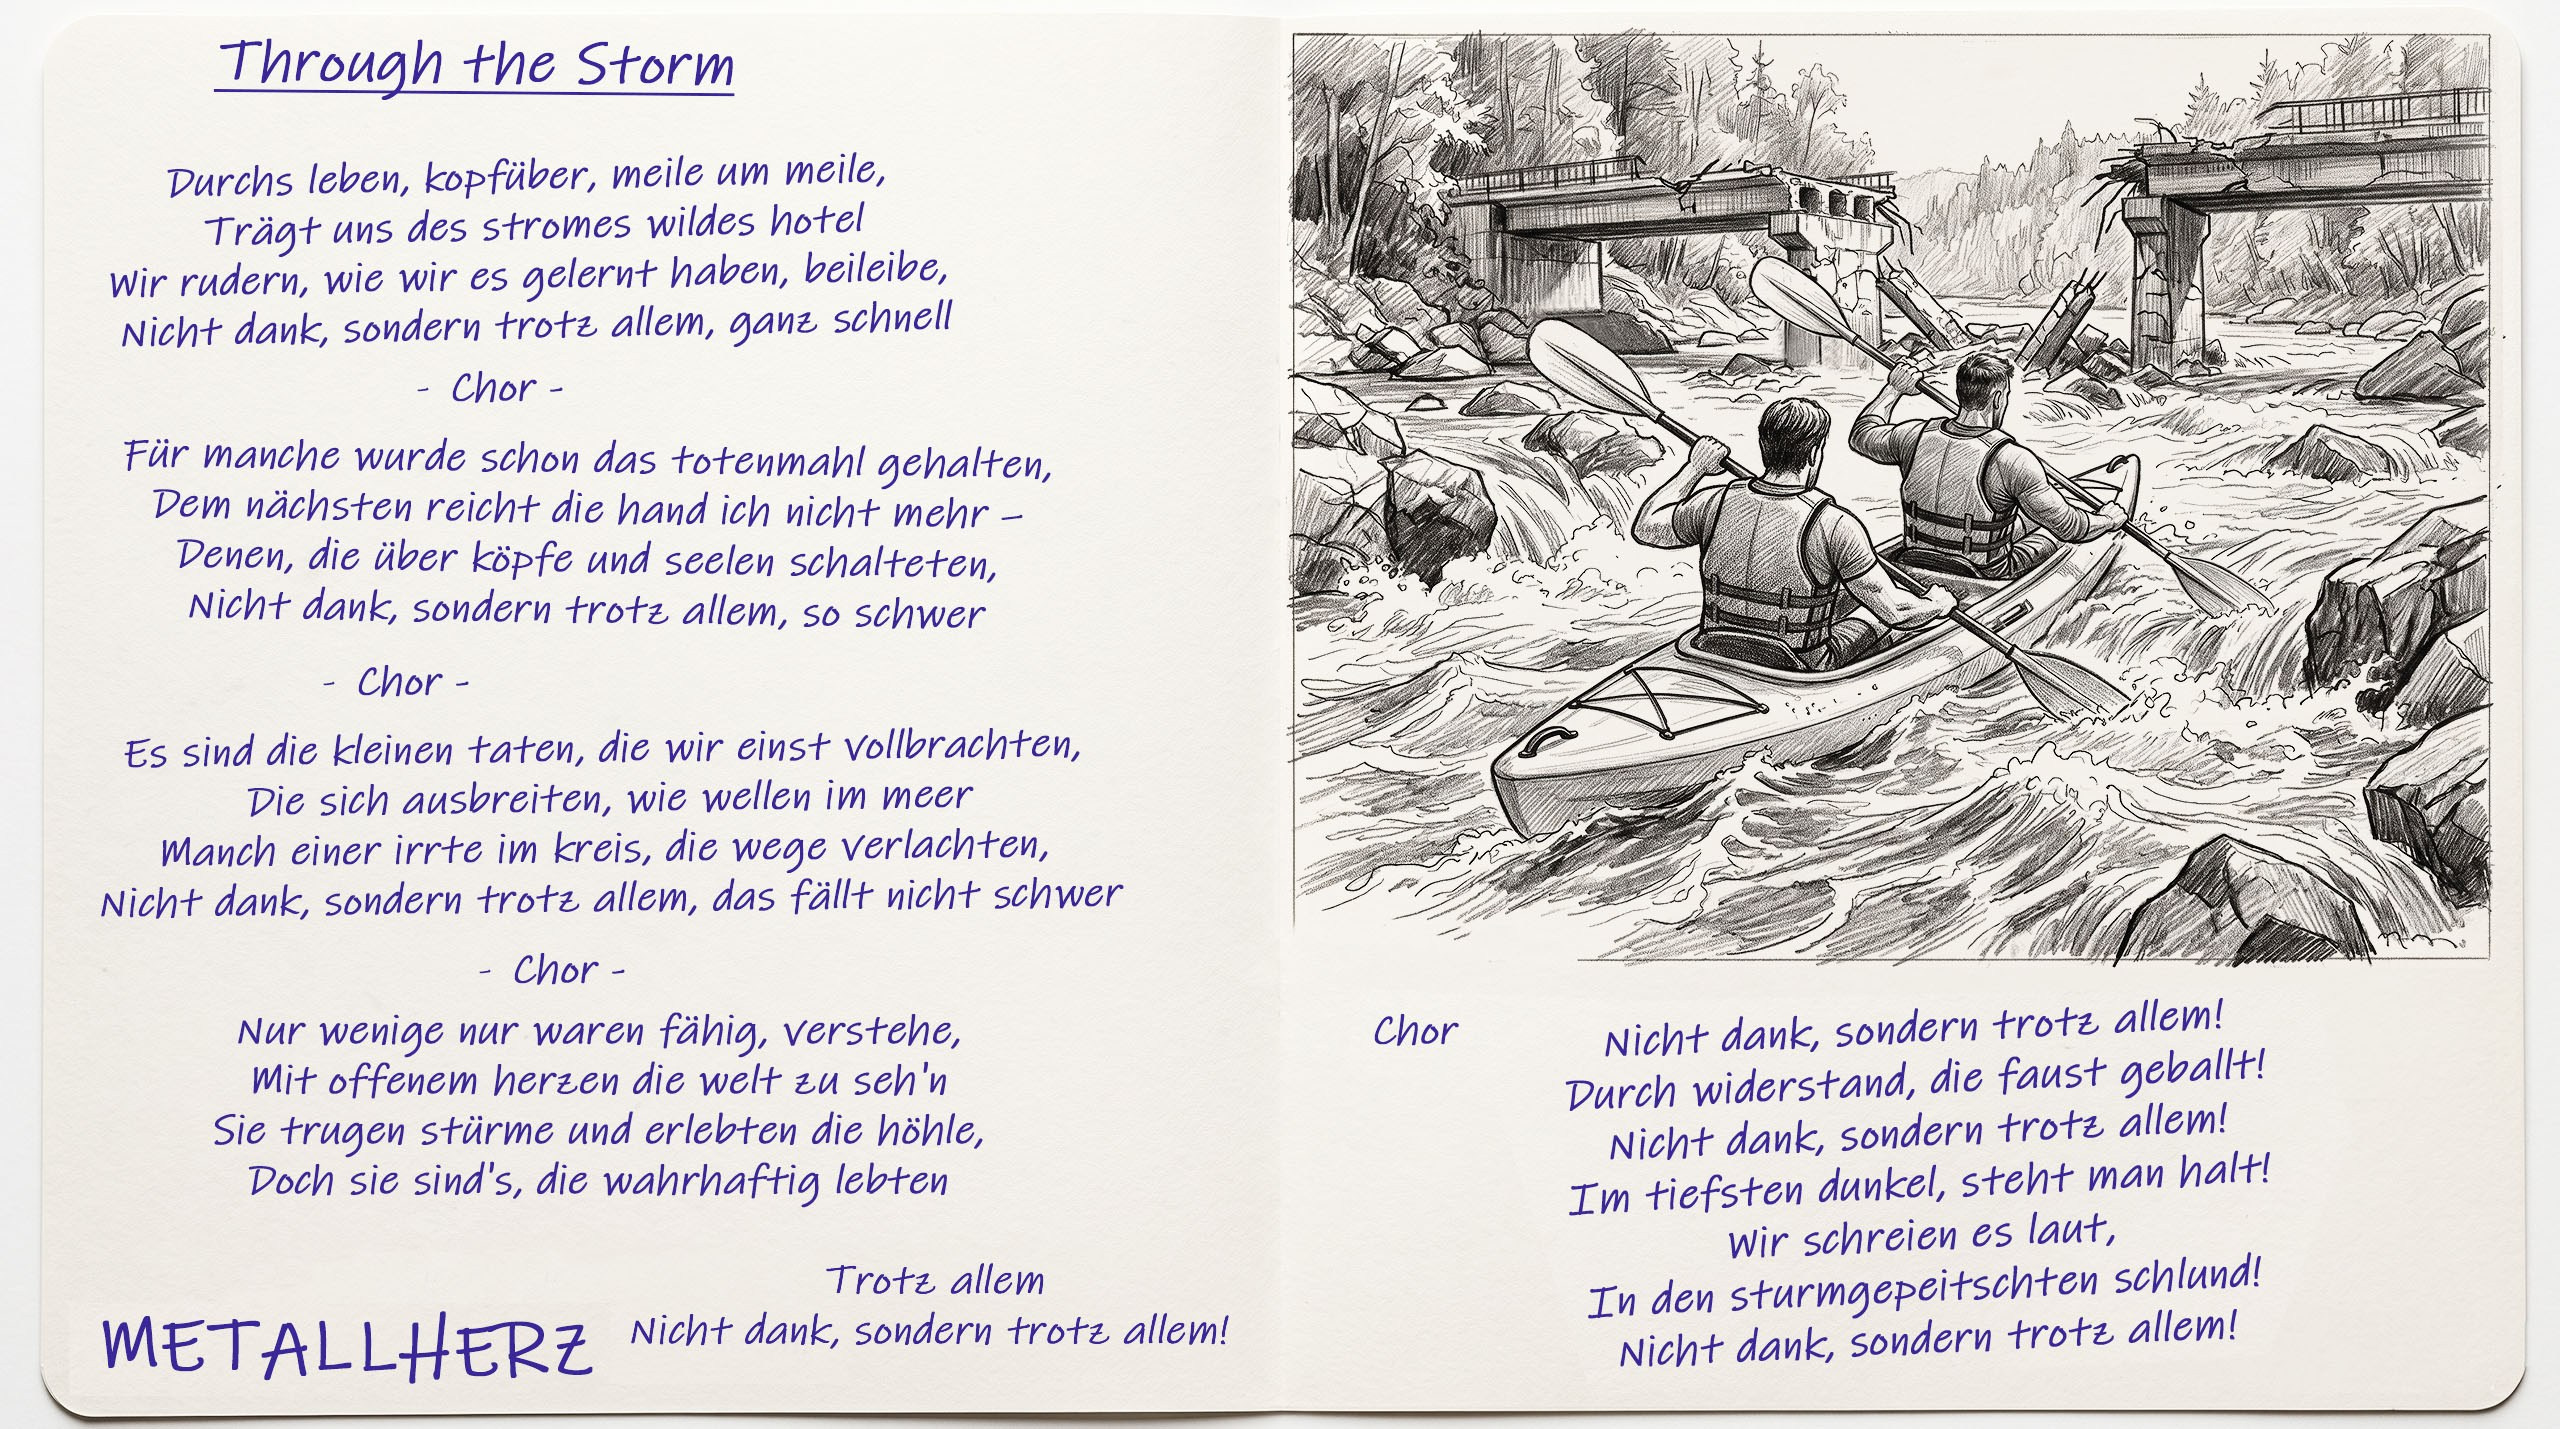 Through the Storm
Durchs leben, kopfüber, meile um meile,
Trägt uns des stromes wildes hotel
Wir rudern, wie wir es gelernt haben, beileibe,
Nicht dank, sondern trotz allem, ganz schnell
- Chor -
Für manche wurde schon das totenmahl gehalten,
Dem nächsten reicht die hand ich nicht mehr –
Denen, die über köpfe und seelen schalteten,
Nicht dank, sondern trotz allem, so schwer
- Chor -
Es sind die kleinen taten, die wir einst vollbrachten,
Die sich ausbreiten, wie wellen im meer
Manch einer irrte im kreis, die wege verlachten,
Nicht dank, sondern trotz allem, das fällt nicht schwer
- Chor -
Nur wenige nur waren fähig, verstehe,
Mit offenem herzen die welt zu seh'n
Sie trugen stürme und erlebten die höhle,
Doch sie sind's, die wahrhaftig lebten
Trotz allem
Nicht dank, sondern trotz allem!
METALLHERZ
Chor
Nicht dank, sondern trotz allem!
Durch widerstand, die faust geballt!
Nicht dank, sondern trotz allem!
Im tiefsten dunkel, steht man halt!
Wir schreien es laut,
In den sturmgepeitschten schlund!
Nicht dank, sondern trotz allem!